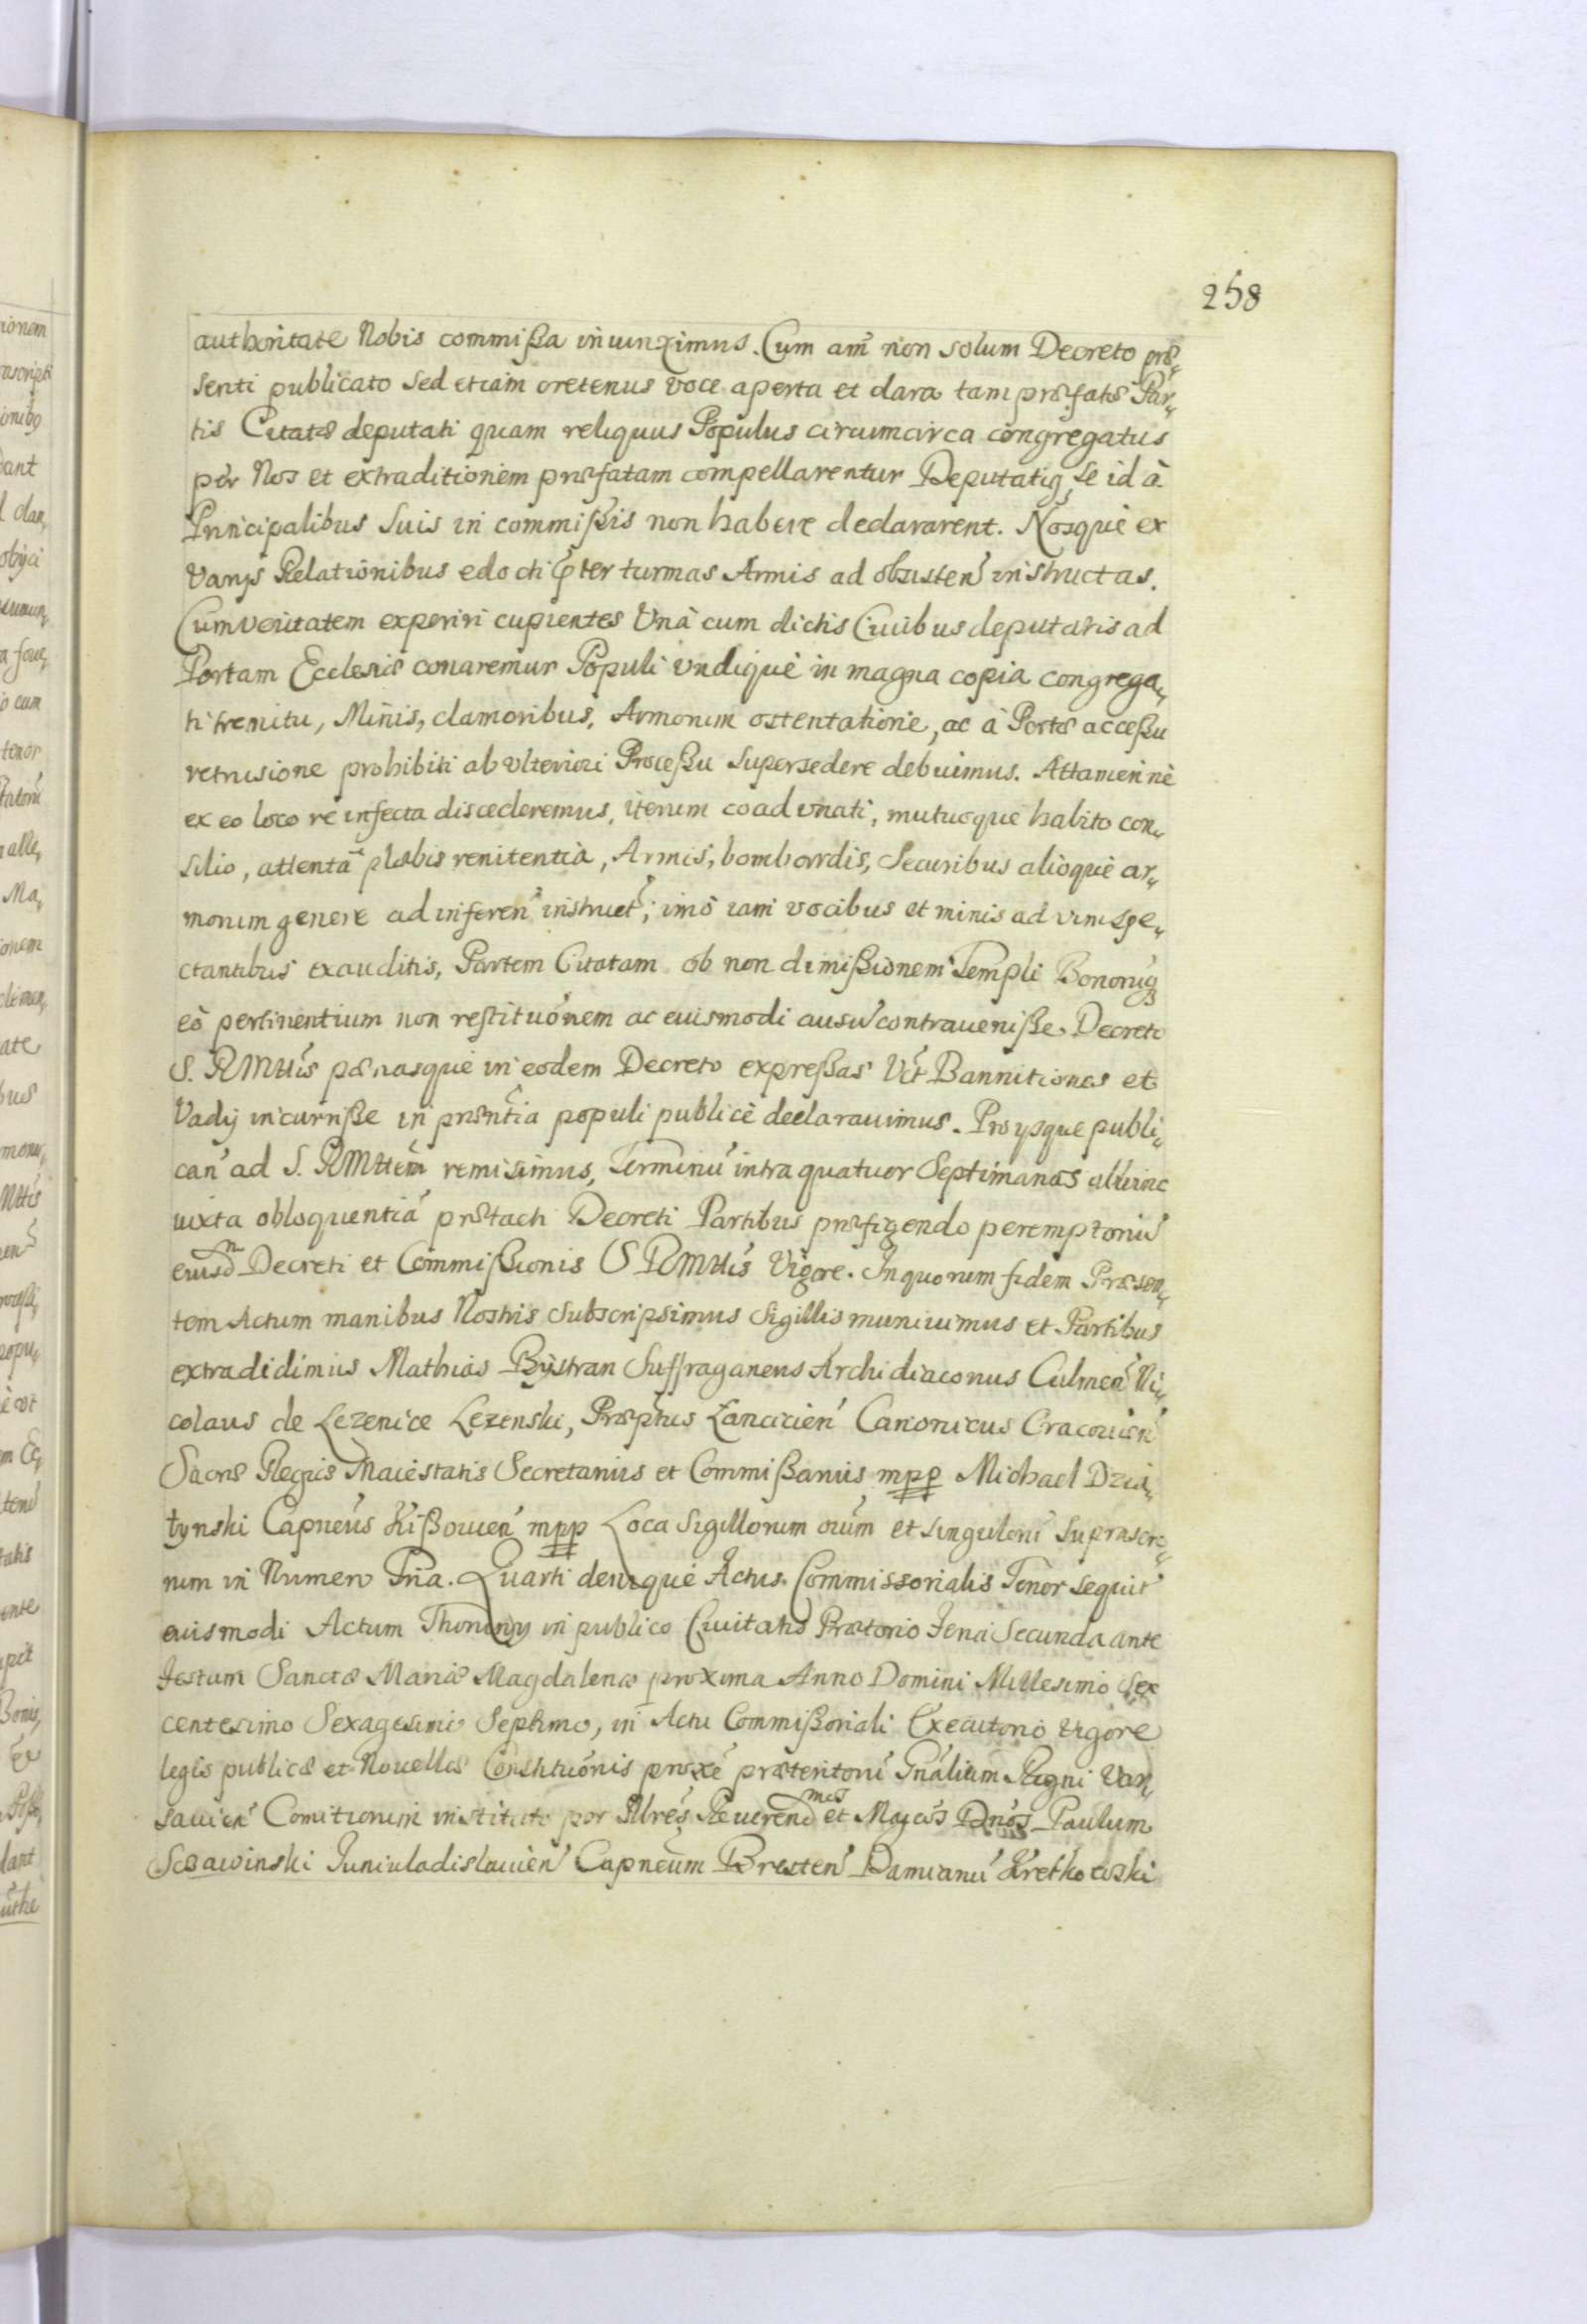 258
authoritate Nobis commißa iniunximus. Cum am̄ non solum Decreto præ„
senti publicato sed etiam oretenus voce aperta et clara tam præfatæ Par„
tis Citatæ deputati quam reliquus Populus circumcirca congregatus
per Nos et extraditionem præfatam compellarentur Deputatiq₃ se id à
Principalibus suis in commißis non habere declararent. Nosquè ex
Varijs Relationibus edocti ꝑter turmas Armis ad obsisten̄ instructas.
Cum veritatem experiri cupientes Vnà cum dictis Ciuibus deputatis ad
Portam Ecclesiæ conaremur Populi vndiquè in magna copia congrega„
ti fremitu, Minis, clamoribus, Armorum ostentatione, ac à Portæ acceßu
retrusione prohibiti ab vlteriori Proceßu supersedere debuimus. Attamen nè
ex eo loco re infecta discederemus, iterum coadvnati, mutuoque habito con„
silio, attentâ plæbis renitentià, Armis, bombardis, Securibus alioquè ar„
morum genere ad inferen̄ instruct̄; imò iam vocibus et minis ad vim spe„
ctantibus exauditis, Partem Citatam ob non dimißionem Templi Bonorūq₃
eò pertinentium non restituōnem ac euismodi ausu contraueniße Decreto
S. RMttis pænasquè in eodem Decreto expreßas Vt̄ Bannitiones et
Vadij incurriße in præsn̄tia populi publicè declarauimus. Pro ijsque publi„
can̄ ad S. RMttem remisimus, Terminū intra quatuor Septimanas abhinc
iuxta obloquentiā prætacti Decreti Partibus præfigendo peremptoriū
eiusdn Decreti et Commißionis S RMttis Vigore. In quorum fidem Præsen„
tem Actum manibus Nostris subscripsimus Sigillis muniuimus et Partibus
extradidimus Mathias Bÿstran Suffraganeus Archidiaconus Culmen̄ Ni„
colaus de Lezenice Lezenski, Præptus Łancicien̄ Canonicus Cracouien̄
Sacræ Regiæ Maiestatis Secretarius et Commißarius mpp Michael Dzia„
łynski Capneūs Kißouien̄ mpp Loca Sigillorum oīum et singulorū suprascr̄o„
rum in Numero Tria. Quarti deniquè Actus Commissorialis Tenor sequit̄
euismodi Actum Thorunij in publico Ciuitatis Prætorio Feria Secunda ante
Festum Sanctæ Mariæ Magdalenæ proxima Anno Domini Millesimo Sex
centesimo Sexagesimo Septimo, in Actu Commißoriali Executorio vigore
legis publicæ et Nouellæ Constituōnis proxē præteritorū Gnālium Regni Var„
sauien̄ Comitiorum instituto per Illres Reuerendmos et Mag̅cos Dnōs Paulum
Szczawinski Juniuladislauien̄ Capneum Bresten̄ Damianū Kretkowski